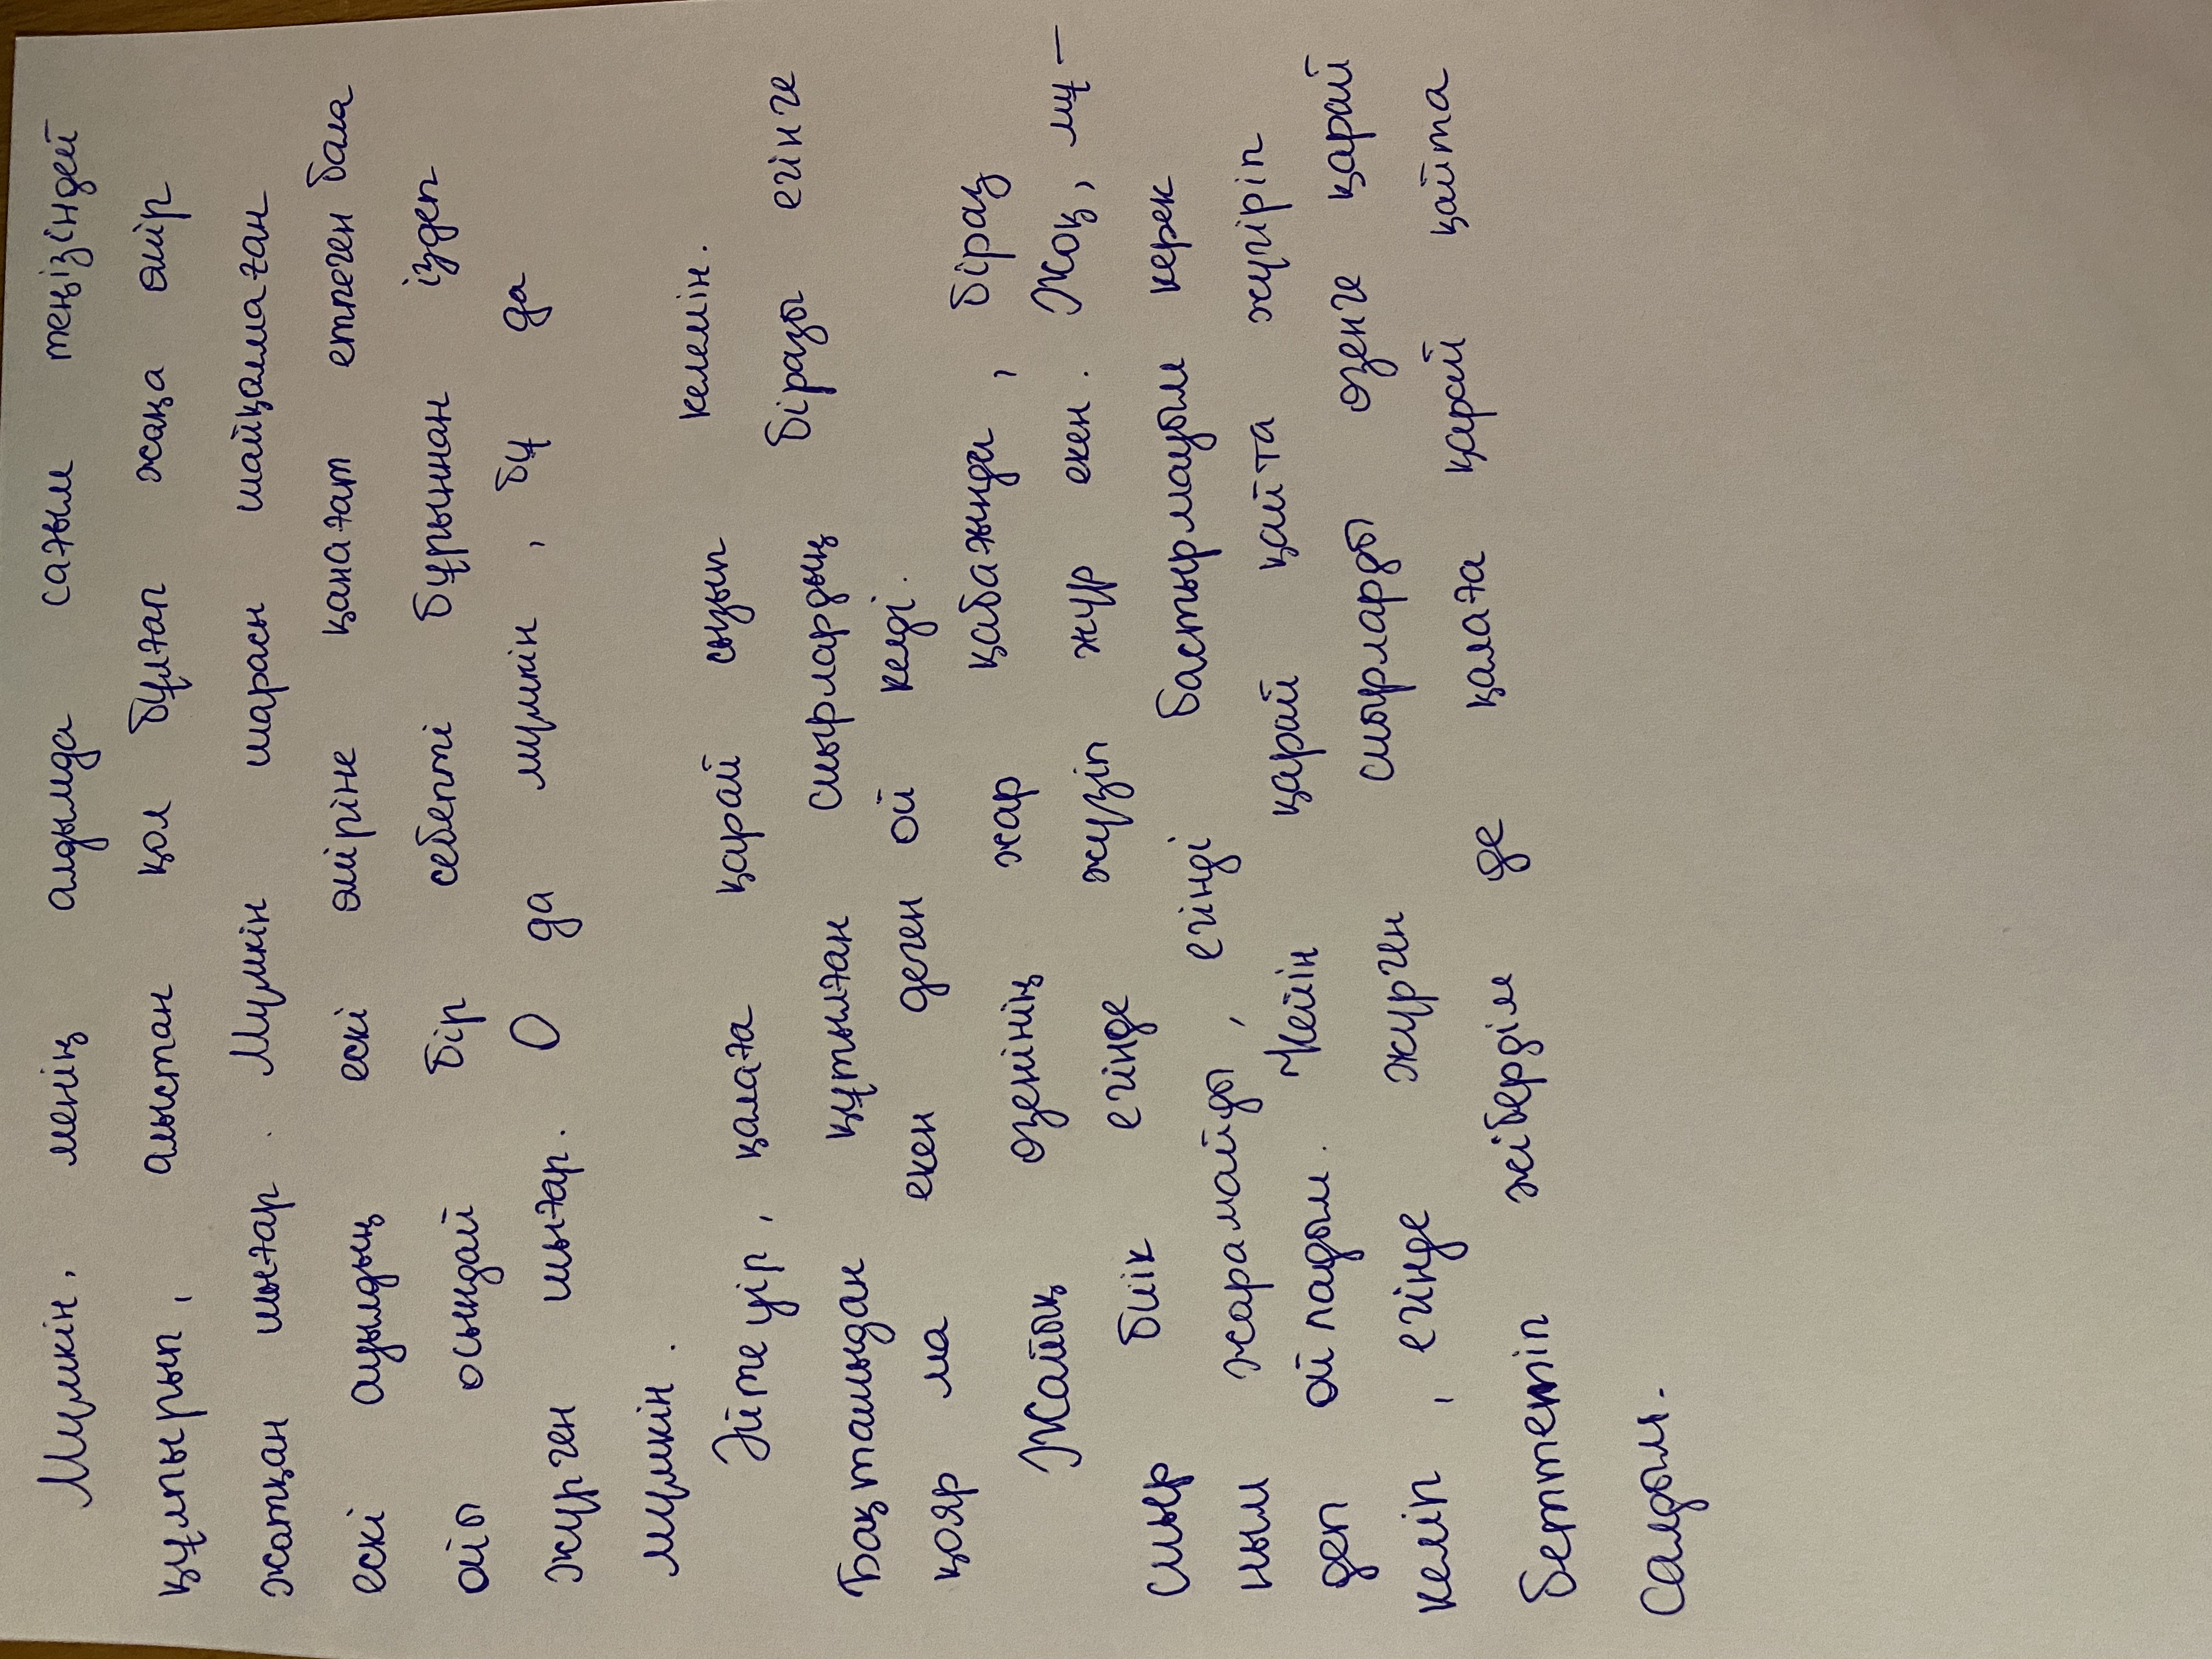 Мүмкін, менің алдымда сағым теңізіндей
құлпырып, алыстан қол бұлғап жаңа өмір
жатқан шығар. Мүмкін шарасы шайқалмаған
ескі ауылдың ескі өміріне қанағат етпеген бала
ойы осындай бір себепті бұрыннан іздеп
жүрген шығар. О да мүмкін, бұ да
мүмкін.
Әйтеуір, қалаға қарай сызып келемін.
Бақташыдан құтылған сиырлардың біразы егінге
қояр ма екен деген ой келді.
Жайық өзенінің жар қабағында, біраз
сиыр биік егінде жүзіп жүр екен. Жоқ, мұ-
ным жарамайды, егінді бастырмауым керек
деп ойладым. Кейін қарай қайта жүгіріп
келіп, егінде жүрген сиырларды өзенге қарай
беттетіп жібердім де қалаға қарай қайта
салдым.